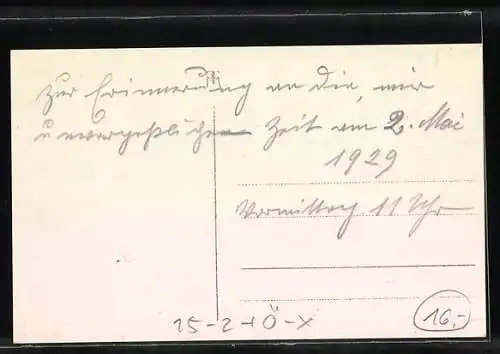 Zur Erinnerung an die, mir
unvergeßlichen Zeit am 2. Mai
1929
Vormittag 11 Uhr
15-2+Ö-X
16.-